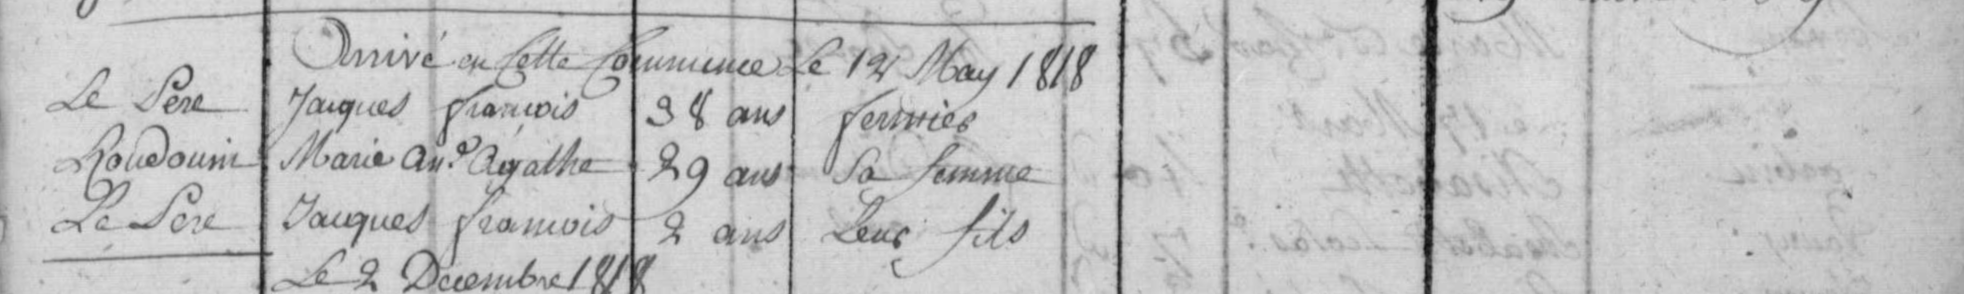 Arrivé en Cette Commune Le 12 May 1818
Le Pere Jacques francois 38 ans fermier
Houdouin Marie an.e Agathe 29 ans Sa femme
Le Pere Jacques francois 2 ans Leur fils
Le 2 Decembre 1818